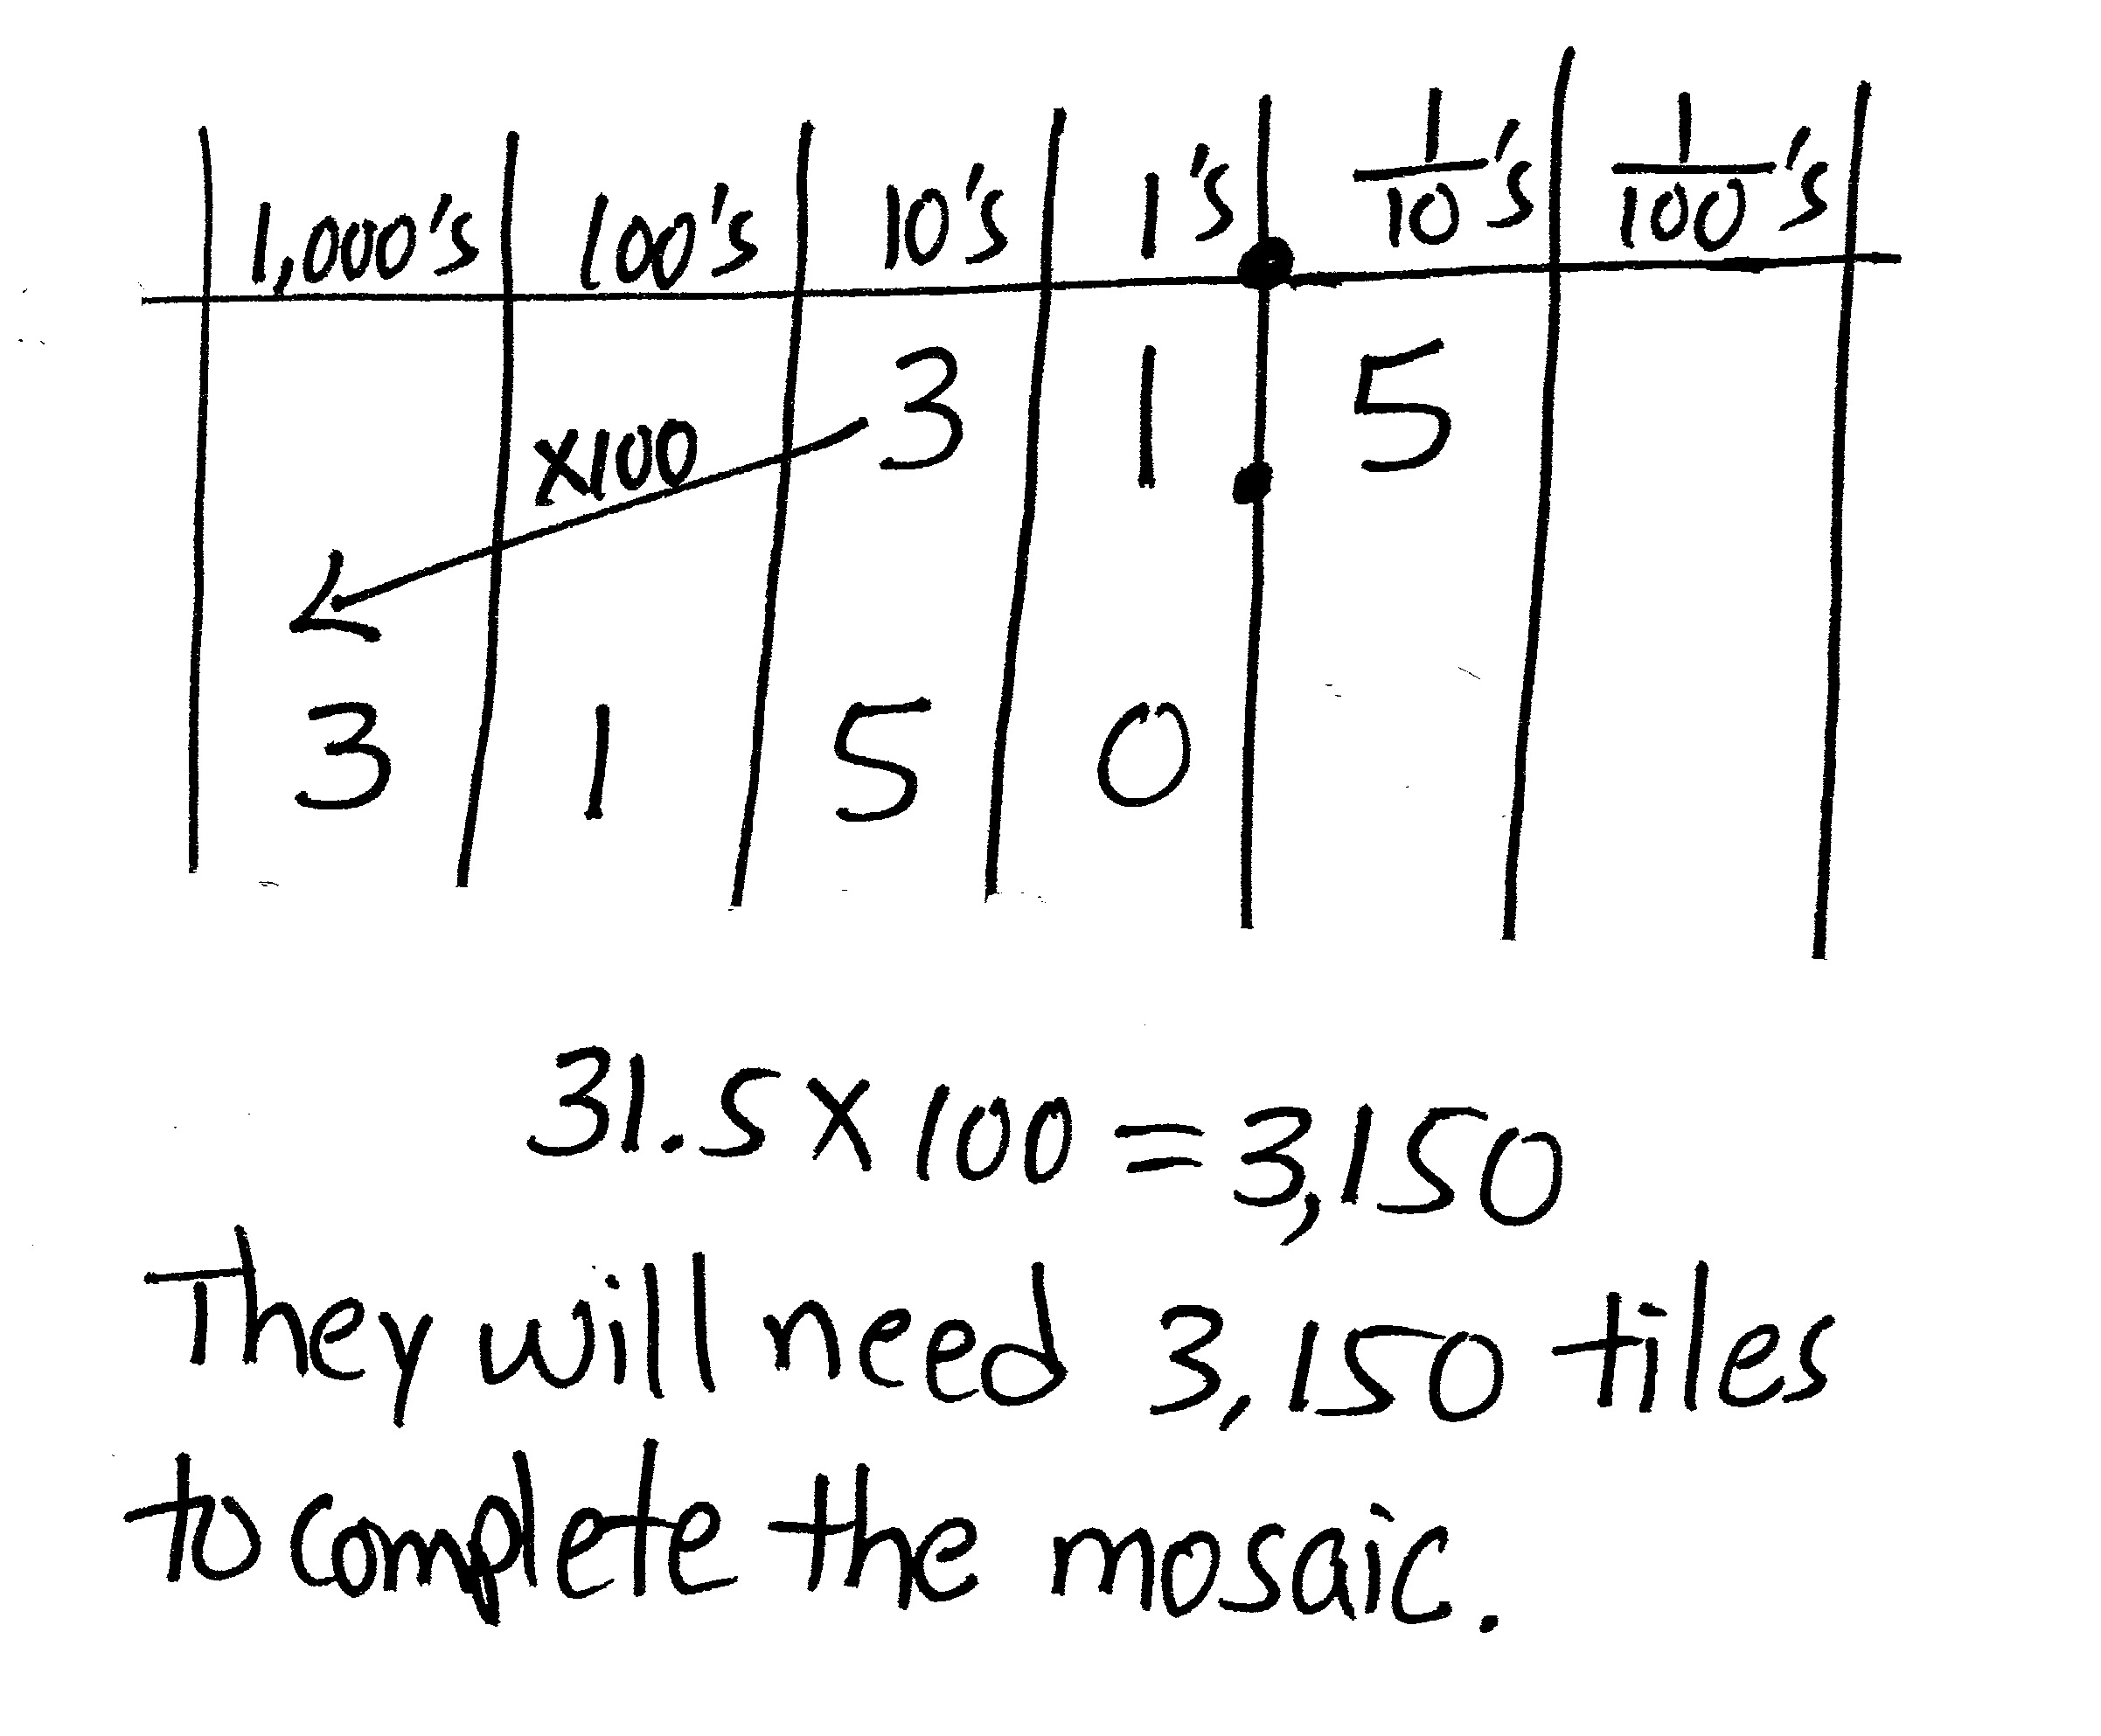 1,000's 100's 10's 1's 1/10's 1/100's
3 1 . 5
x100
3 1 5 0
31.5 x 100 = 3,150
They will need 3,150 tiles
to complete the mosaic.